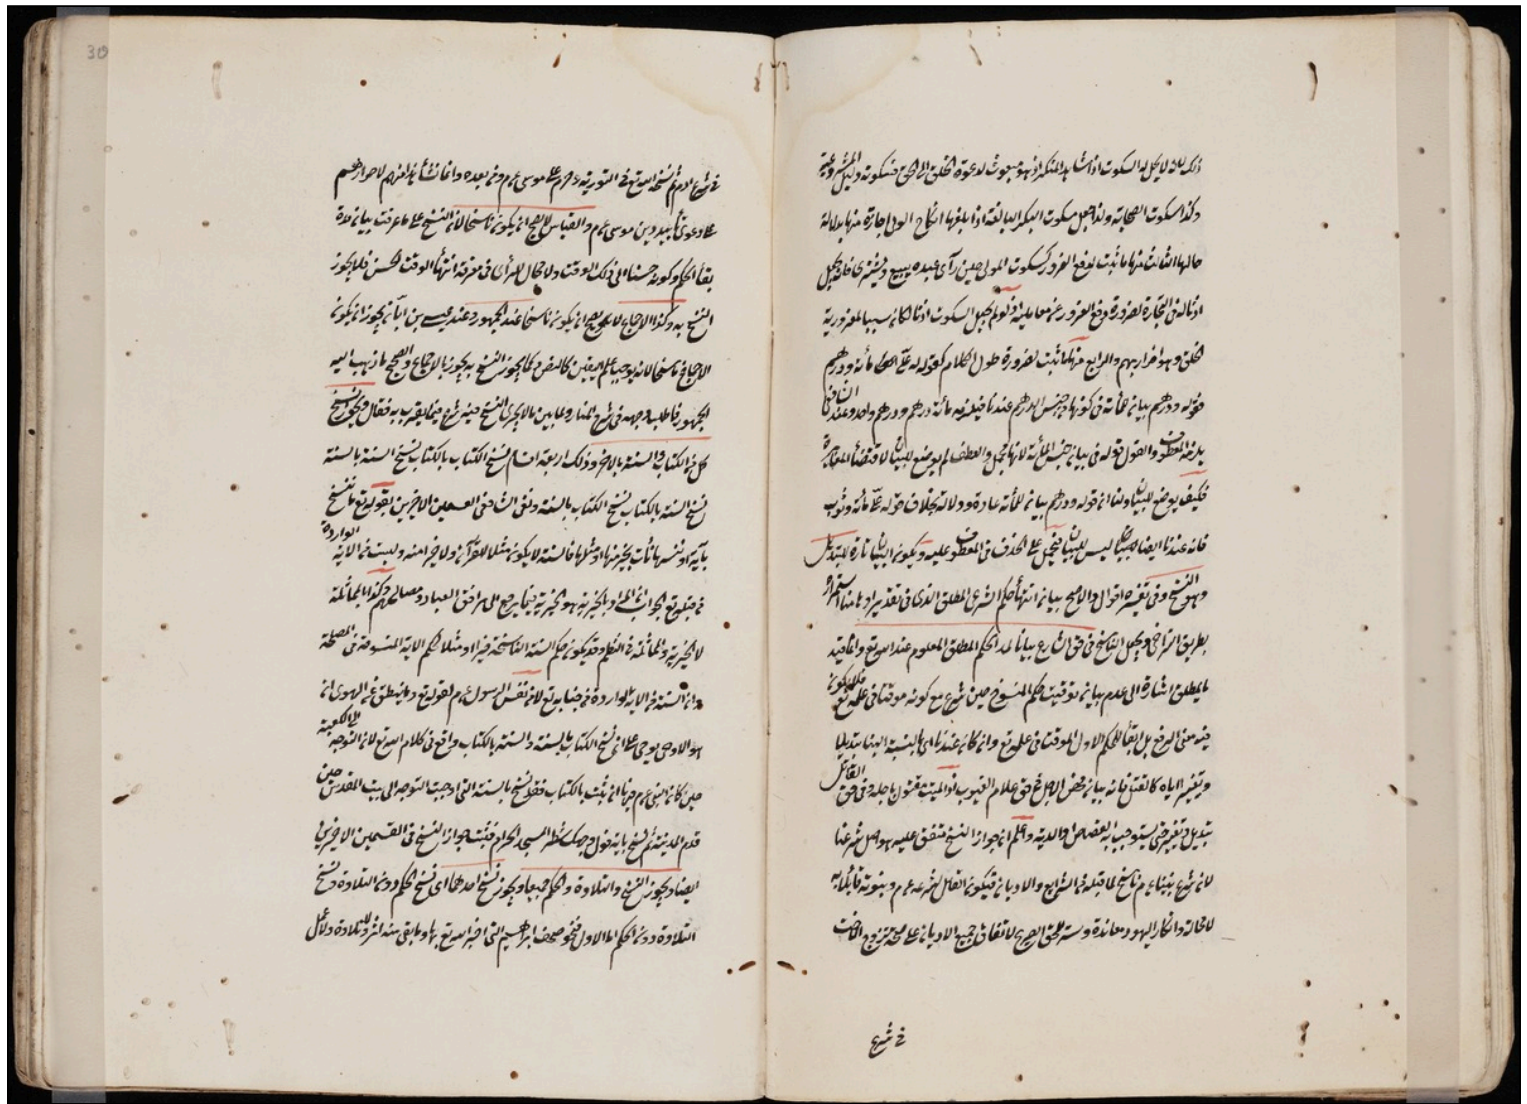 ذلك لانه لا يحل له السكوت اذا شاهد المنكر اذ هو مبعوث لدعوة الخلق الى الحق فسكوته دليل المشروعية
وكذا سكوت الصحابة ولذا جعل سكوت البكر البالغة اذا بلغها انكاح الولى اجازة منها بدلالة
حالها الثالث منها ما ثبت لدفع الغرور كسكوت المولى حين رأى عبده يبيع ويشترى فانه يجعل
اذنا له فى التجارة لضرورة دفع الغرور عن معامليه اذ لو لم يجعل السكوت اذنا لكان سببا لمغرورية
الخلق وهو اضرار بهم والرابع منها ما ثبت لضرورة طول الكلام كقوله له علىّ مأئة ودرهم
فقوله ودرهم بيان للمأئة فى كونها من جنس الدرهم عندنا فيلزمه مأئة درهم ودرهم واحد وعند الشافعى
يلزمه المعطوف والقول قوله فى بيان جنس المأئة لانها مجمل والعطف لم يوضع للبيان لاقتضائه المغايرة
فكيف يوضع للبيان ولنا ان قوله ودرهم بيان للمأئة عادة ودلالة بخلاف قوله علىّ مأئة وثوب
فانه عندنا ايضا ليس للبيان فيحمل على الحذف فى المعطوف عليه ويكون البيان تارة للتبديل
وهو النسخ وفى تفسيره اقوال والاصح بيان انتهاء الحكم الشرعى المطلق الذى فى تقدير اوهامنا استمراره
بطريق التراخى ويجعل الناسخ فى حق الشارع بيانا لمدة الحكم المطلق المعلوم عند الله تع وانما قيد
بالمطلق اشارة الى عدم بيان توقيت حكم المنسوخ حين شرع مع كونه موقتا فى علمه تع فلا يكون
فيه معنى الرفع بل ابقأ للحكم الاول الموقت فى علمه تع وان كان عندنا اى بالنسبة الينا تبديلا
وتغييرا اياه كالقتل فانه بيان محض للاجل فى حق علام الغيوب اذ الميت مقتول باجله وفى حق القاتل
تبديل وتغيير حتى يستوجب به القصاص او الدية واعلم ان جواز النسخ متفق عليه بين اهل شرعنا
لان شرع نبينا ءم ناسخ لما قبله من الشرايع والاديان فيكون القائل بشرعه ءم ونبوته قائلا به
لا محالة وانكار اليهود معاندة وستر للحق الصريح لاتفاق جميع الاديان على صحة تزوج الاخت
فى شرع
فى شرع ادم ثم نسخه الله تع فى التورية وحرم على موسى ءم ومن بعده وانما نشأ هذا منهم لاصرارهم
على دعوى تأبيد دين موسى ءم والقياس لا يصح ان يكون ناسخا لان النسخ على ما عرفت بيان مدة
بقأ الحكم وكونه حسنا الى ذلك الوقت ولا مجال للرأى فى معرفة انتهأ الوقت الحسن فلا يجوز
النسخ به وكذا الاجماع لا يصح ان يكون ناسخا عند الجمهور وعند عيسى بن ابان يجوز ان يكون
الاجماع ناسخا لانه يوجب علم اليقين كالنص فكما يجوز النسخ به يجوز بالاجماع والصحيح ما ذهب اليه
الجمهور فاطلب وجهه فى شرح المنار ولما بين ما لا يجرى النسخ فيه شرع فيما يقرب به فقال ويجوز نسخ
كل من الكتاب والسنة بالاخر وذلك اربعة اقسام نسخ الكتاب بالكتاب نسخ السنة بالسنة
نسخ السنة بالكتاب نسخ الكتاب بالسنة ونفى الشافعى القسمين الاخيرين بقوله تع ما ننسخ
بآية او ننسها نأت بخير منها او مثلها فالسنة لا يكون مثلا للقرآن ولا خيرا منه وليست من الاية الواردة
من قبله تع الجواب ان المراد بالخيرية هو الخيرية فيما يرجع الى مرافق العباد ومصالحهم وكذا المماثلة
لا الخيرية والمماثلة فى النظم وقد يكون حكم السنة الناسخة خيرا او مثلا لحكم الاية المنسوخة فى المصلحة
وان السنة من الاية الواردة من جنابه تع لا من نفس الرسول ءم لقوله تع وما ينطق عن الهوى ان
هو الا وحى يوحى على ان نسخ الكتاب بالسنة والسنة بالكتاب واقع فى كلام الله تع لان التوجه الى الكعبة
حين كان النبى ءم فيها ان ثبت بالكتاب فقد نسخ بالسنة التى اوجبت التوجه الى بيت المقدس حين
قدم المدينة ثم نسخ باية فول وجهك شطر المسجد الحرام فثبت جواز النسخ فى القسمين الاخيرين
ايضا ويجوز النسخ والتلاوة والحكم جميعا ويجوز نسخ احدهما اى نسخ الحكم دون التلاوة ونسخ
التلاوة دون الحكم اما الاول فنحو صحف ابراهيم التى اخبر الله تع بها وما بقى منه اثر لا تلاوة ولا عمل